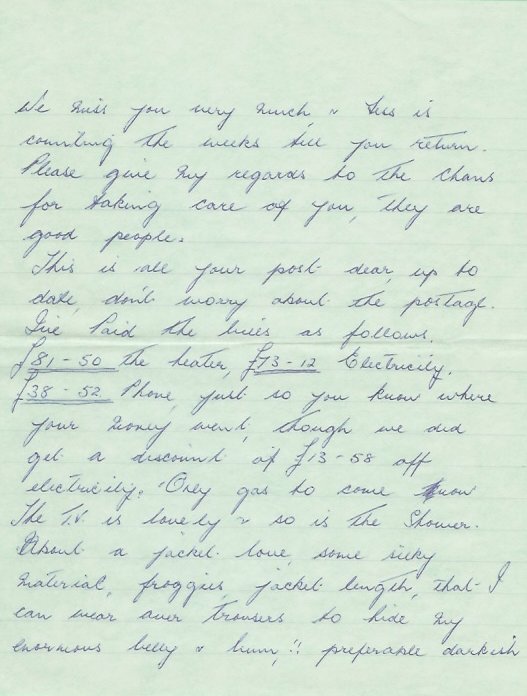 We miss you very much & Tess is
counting the weeks till you return.
Please give my regards to the Chans
for taking care of you, they are
good people.
This is all your post dear, up to
date, don't worry about the postage.
I've Paid the bills as follows.
£81-50 the heater, £73-12 Electricity.
£38-52 Phone, just so you know where
your money went, though we did
get a discount of £13-58 off
electricity. Only gas to come now
The T.V. is lovely & so is the Shower.
About a jacket love, some silky
material, froggies, jacket length, that I
can wear over trousers to hide my
enormous belly & bum,!! preferable darkish